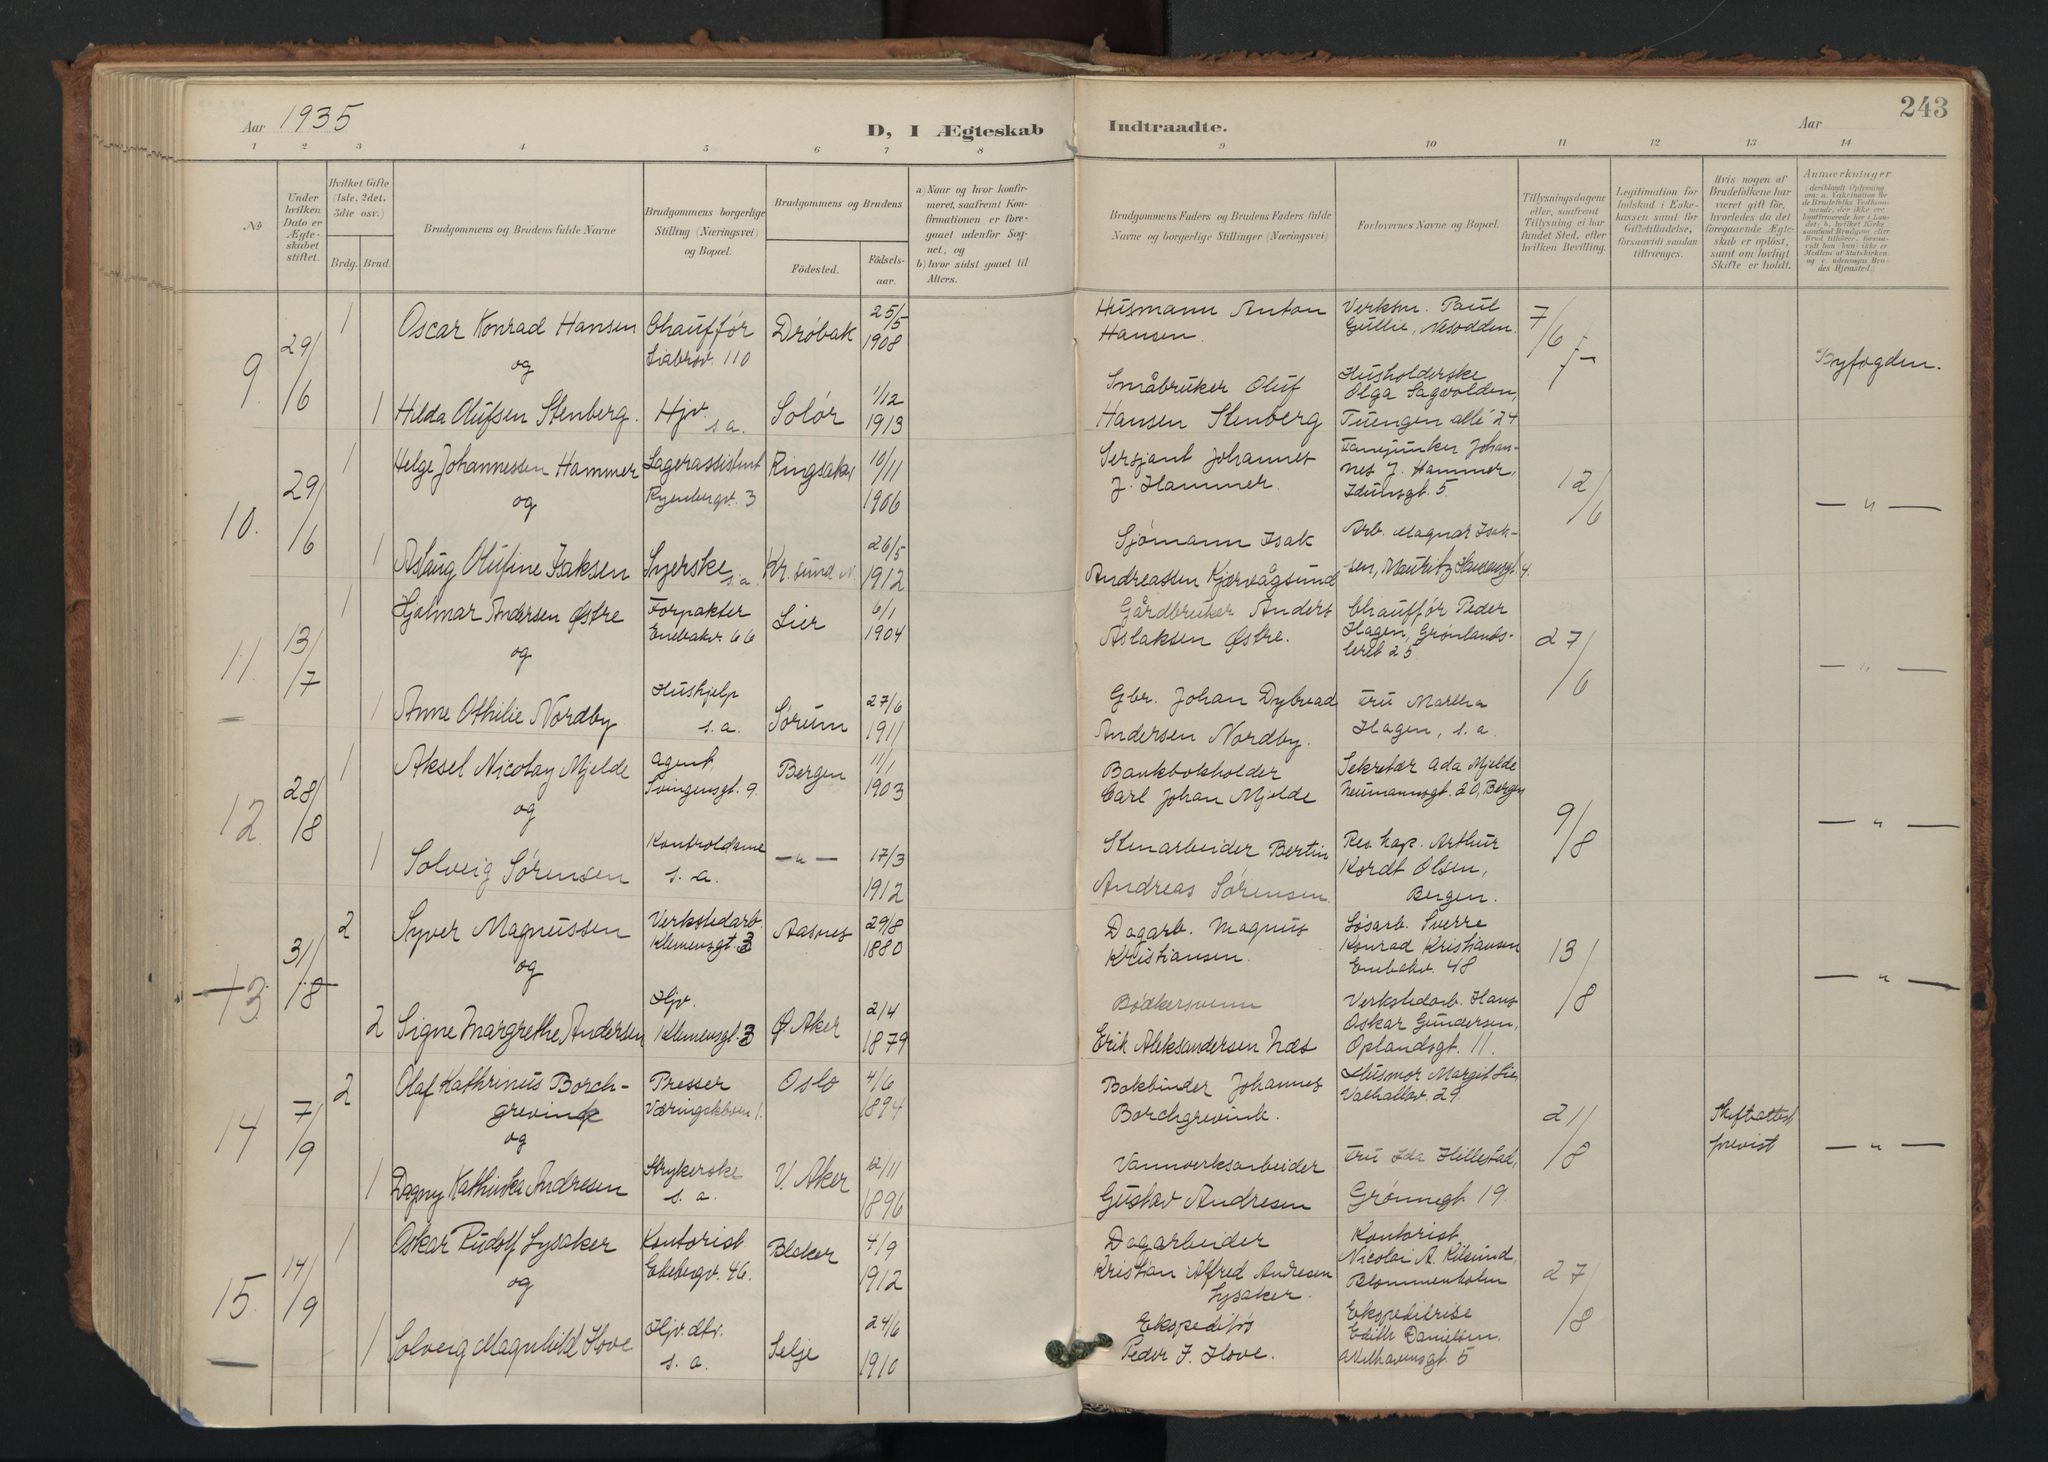 243
Aar 1935
D, I Ægteskab Indtraadte.
Aar
1 2 3 4 5 6 7 8 9 10 11 12 13 14
№
Under hvilken Dato er Ægteskabet stiftet.
Hvilket Gifte (1ste, 2det, 3die osv.)
Brdg. Brud.
Brudgommens og Brudens fulde Navne
Brudgommens borgerlige Stilling (Næringsvei) og Bopæl.
Brudgommens og Brudens
Födested. Födselsaar.
a) Naar og hvor konfirmeret, saafremt Konfirmationen er foregaaet udenfor Sognet, og
b) hvor sidst gaaet til Alters.
Brudgommens Faders og Brudens Faders fulde Navne og borgerlige Stillinger (Næringsvei)
Forlovernes Navne og Bopæl.
Tillysningsdagene eller, saafremt Tillysning ei har fundet Sted, efter hvilken Bevilling.
Legitimation for Indskud i Enkekassen samt for Giftetilladelse, forsaavidt saadan tiltrænges.
Hvis nogen af Brudefolkene har været gift för, hvorledes da det foregaaende Ægteskab er oplöst, samt om lovligt Skifte er holdt.
Anmærkninger
9. 29/6
1 Oscar Konrad Hansen Chaufför Drøbak 25/5
og Liabrov. 110 1908
Husmann Anton Verksm. Paul 7/6
Hansen. Gullie, Nesodden.
Byfogden.
1 Hilda Olufsen Stenberg. Hjv. Solør 1/12
s.a. 1913
Småbruker Oluf Husholderske
Hansen Stenberg Olga Sagvolden,
Tuengen allé 24
10. 29/6
1 Helge Johannessen Hammer Lagerassistent Ringsaker 10/11
og Ryenbergv. 3 1906
Sersjant Johannes Fanejunker Johan-
J. Hammer. nes J. Hammer, 12/6
Idunsgt. 5.
— " —
1 Aslaug Olufine Isaksen Syerske Kr.sund N. 26/5
s.a. 1912
Sjømann Isak Arb. Magnar Isak-
Andreassen Kjærvågsund sen, Mauritz Hansensgt 4.
11. 13/7
1 Hjalmar Andersen Østre Forpakter Lier 6/1
og Enebakv. 66 1904
Gårdbruker Anders Chaufför Peder
Aslaksen Østre. Hagen, Grønlands- 27/6
leret 25
— " —
1 Anne Othilie Nordby Hushjelp Sørum 27/6
s.a. 1911
Gbr. Johan Dybvad Fru Martha
Andersen Nordby. Hagen, s.a.
12. 28/8
1 Aksel Nicolay Mjelde agent Bergen 11/1
og Svingensgt. 9. 1903
Bankbokholder Sekretær Ada Mjelde
Carl Johan Mjelde Neumannsgt. 20, Bergen
9/8
— " —
1 Solveig Sørensen Kontroldame — " — 17/3
s.a. 1912
Stenarbeider Bertin Res. kap. Arthur
Andreas Sørensen. Kordt Olsen,
Bergen.
13. 31/8
2 Syver Magnussen Verkstedarb. Aasnes 29/8
og Klemensgt. 3 1880
Dagarb. Magnus Løsarb. Sverre
Kristiansen. Konrad Kristiansen 13/8
Enebakv. 48
— " —
2 Signe Margrethe Andersen Hjv. Ø. Aker 2/4
Klemensgt. 3 1879
Bødkersvenn Verkstedarb. Hans
Erik Aleksandersen Næs Oskar Gundersen,
Oplandsgt. 11.
14 7/9
2 Olaf Kathrinus Borch- Presser Oslo 4/6
grevink Væringskoven 1. 1894
og
Bokbinder Johannes Husmor Margit Lie,
Borchgrevink. Valhallav. 29.
21/8
Skifteattest
previst
— " —
1 Dagny Kathinka Andresen Strykerske V. Aker 12/11
s.a. 1896
Vannverksarbeider Fru Ida Hillestad,
Gustav Andresen Grønnegt. 19.
15. 14/9
1 Oskar Rudolf Lysaker Kontorist Blaker 4/9
og Ekebergv. 46. 1912
Dagarbeider Kontorist
Kristian Alfred Andresen Nicolai A. Kilsund,
Lysaker. Blommenholm
27/8
1 Solveig Magnhild Hove Hjv. dtr. Selje 24/6
s.a. 1910
Ekspeditør Ekspeditrise
Peder J. Hove. Edith Danielsen,
5